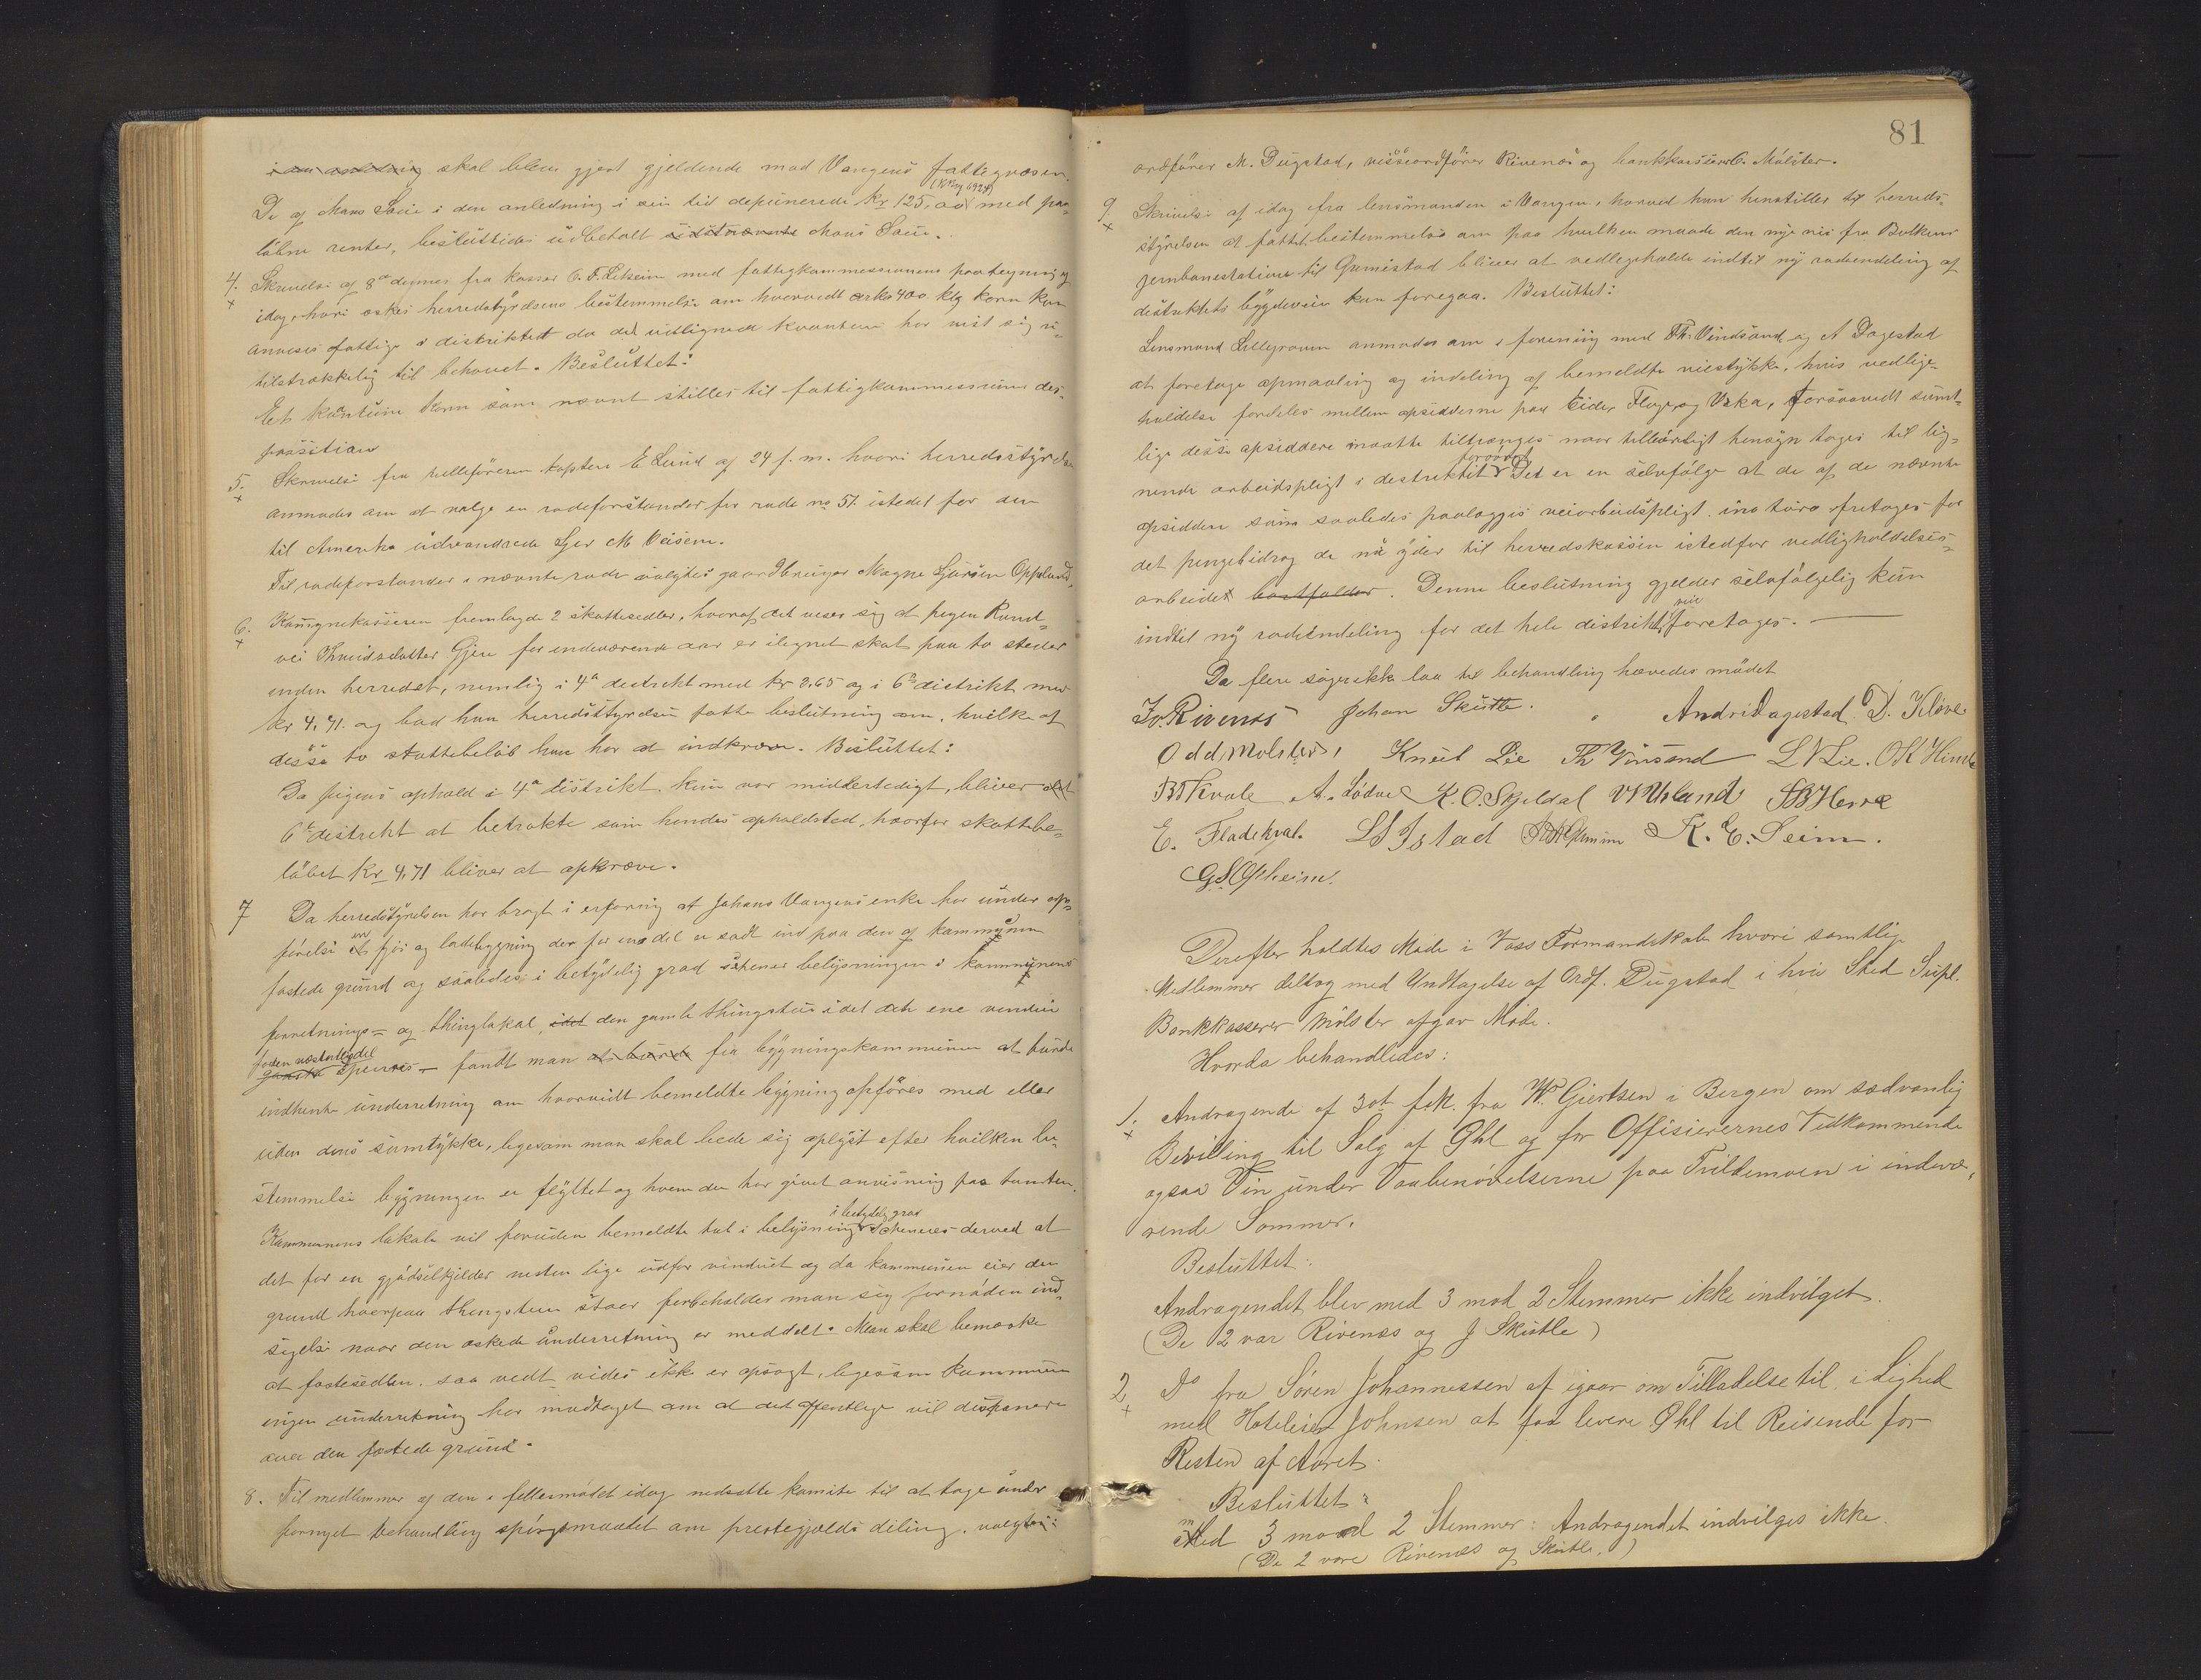 i an anledning skal blive gjort gjeldende mod Vangens fattigvæsen.
De af Mons Sæue i den anledning i sin tid deponerede kr 125,00 (KBog 1924) med paa-
løbne renter, besluttedes udbetalt Mons Sæue.
4. Skrivelse af 8de dennes fra kasser O. T. Seheim med fattigkommissionens paategning af
idag, hvori øskes herredstyrelsens bestemmelse om hvorvidt cirka 400 klg korn kan
anvises fattige i distriktet da det udlignede kvantum har vist sig u-
tilstrækkelig til behovet. Besluttet:
Et kvantum korn som nævnt stilles til fattigkommissionens dis-
position
5. Skrivelse fra rulleføreren kaptein E Lund af 24 f. m. hvori herredsstyrelsen
anmodes om at vælge en rodeforstander for rode no 51. istedet for den
til Amerika udvandrede Sjur M Veisene.
Til rodeforstander i nævnte rode valgtes gaardbruger Magne Sjursen Opeland.
6. Kommunekasseren fremlagde 2 skattesedler, hvoraf det viser sig at pigen Rand-
vei Knudsdatter Gjere for indeværende aar er ilignet skat paa to steder
inden herredet, nemlig i 4de distrikt med kr 2,65 og i 6te distrikt med
kr 4,71. og bad han herredsstyrelsen fatte beslutning om, hvilke af
disse to skattebeløb han har at indkræve. Besluttet:
Da pigens ophold i 4de distrikt kun var midlertidigt, bliver det
6te distrikt at betrakte som hendes opholdsted, hvorfor skattebe-
løbet kr 4,71 bliver at opkræve.
7 Da herredstyrelsen har bragt i erfaring at Johans Vangens enke har under op-
førelse en fjøs og ladebygning der for en del er sadt ind paa den af kommunen
fæstede grund og saaledes i betydelig grad sjenerer belysningen i kommunens
forretnings- og thinglokal, idet den gamle thingstue idet det ene vindu
for den væsentligste del ganske sperres – fandt man at burde fra bygningskommunen at burde
indhente underretning om hvorvidt bemeldte bygning opføres med eller
uden dens samtykke, ligesom man skal bede sig oplyst efter hvilken be-
stemmelse bygningen er flyttet og hvem der har givet anvisning paa tomten.
Kommunens lokale vil foruden bemeldte tab i belysning i betydelig grad scheneres derved at
det for en gjødselkjelder nesten lige udfor vinduet og da kommunen eier den
grund hvorpaa thingstuen staar forbeholder man sig fornøden ind-
sigelse naar den øskede underretning er meddelt. Man skal bemærke
at fæstesedlen, saa vidt vides ikke er opsagt, ligesom kommunen
ingen underretning har modtaget om at det offentlige vil disponere
over den fæstede grund.
8. Til medlemmer af den i fellesmødet idag nedsatte komite til at tage under
fornyet behandling spørgsmaalet om prestegjeldets deling, valgtes:
81
ordfører M. Dugstad, viseordfører Rivenes og bankkasserer O. Mølster.
9. Skrivelse af idag fra lensmanden i Vangen, hvorved han henstiller til herreds-
styrelsen at fatte bestemmelse om paa hvilken maade den nye vei fra Bolkens
jernbanestation til Grimestad bliver at vedlegeholde indtil ny rodeinddeling af
distriktets bygdeveie kan foregaa. Besluttet:
Lensmand Lillegraven anmodes om i forening med Th. Vinsand og A Dagestad
at foretage opmaaling og indeling af bemeldte veistykke, hvis vedlige-
holdelse fordeles mellem opsidderne paa Eide, Flage og Væka, forsaavidt samt-
lige disse opsiddere maatte tiltrænges naar tilbørligt hensyn tages til lig-
nende arbeidspligt i destriktet forøvrigt. Det er en selvfølge at de af de nævnte
opsiddere som saaledes paalægges veiarbeidspligt in natura fritages for
det pengebidrag de nu yder til herredskassen istedfor vedligholdelses-
arbeidet bortfalder. Denne beslutning gjelder selvfølgelig kun
indtil ny rodeindeling for det hele distrikts veie foretages. —
Da flere sager ikke laa til behandling hævedes mødet
Iv. Rivenæs Johan Skutle. Andr Dagestad. D. Kløve
Odd Mølster, Knut Lie Th Vinsand L N Lie. O K Himle
B T Kvale A. Lødve K. O. Skjeldal V N Uhland S B Herre
E. Fladekval. L S Istad K. E. Seim.
G S Opheim.
Derefter holdtes Møde i Voss Formandskab hvori samtlige
Medlemmer deltog med Undtagelse af Ordf. Dugstad i hvis Sted Supl.
Bankkasserer Mølster afgav Møde.
Hvorda behandledes:
1. Andragende af 30t f.M. fra W. Giertsen i Bergen om sædvanlig
Bevilling til Salg af Øhl og for Offisierernes Vedkommende
ogsaa Vin under Vaabenøvelserne paa Tvildemoen i indevæ-
rende Sommer.
Besluttet:
Andragendet blev med 3 mod 2 Stemmer ikke indvilget.
(De 2 var Rivenæs og J Skutle)
2. Do fra Søren Johannessen af igaar om Tilladelse til, i Lighed
med Hoteleier Johnsen at faa levere Øhl til Reisende for
Resten af Aaret.
Besluttet:
Med 3 mod 2 Stemmer: Andragendet indvilges ikke.
(De 2 vare Rivenæs og Skutle.)